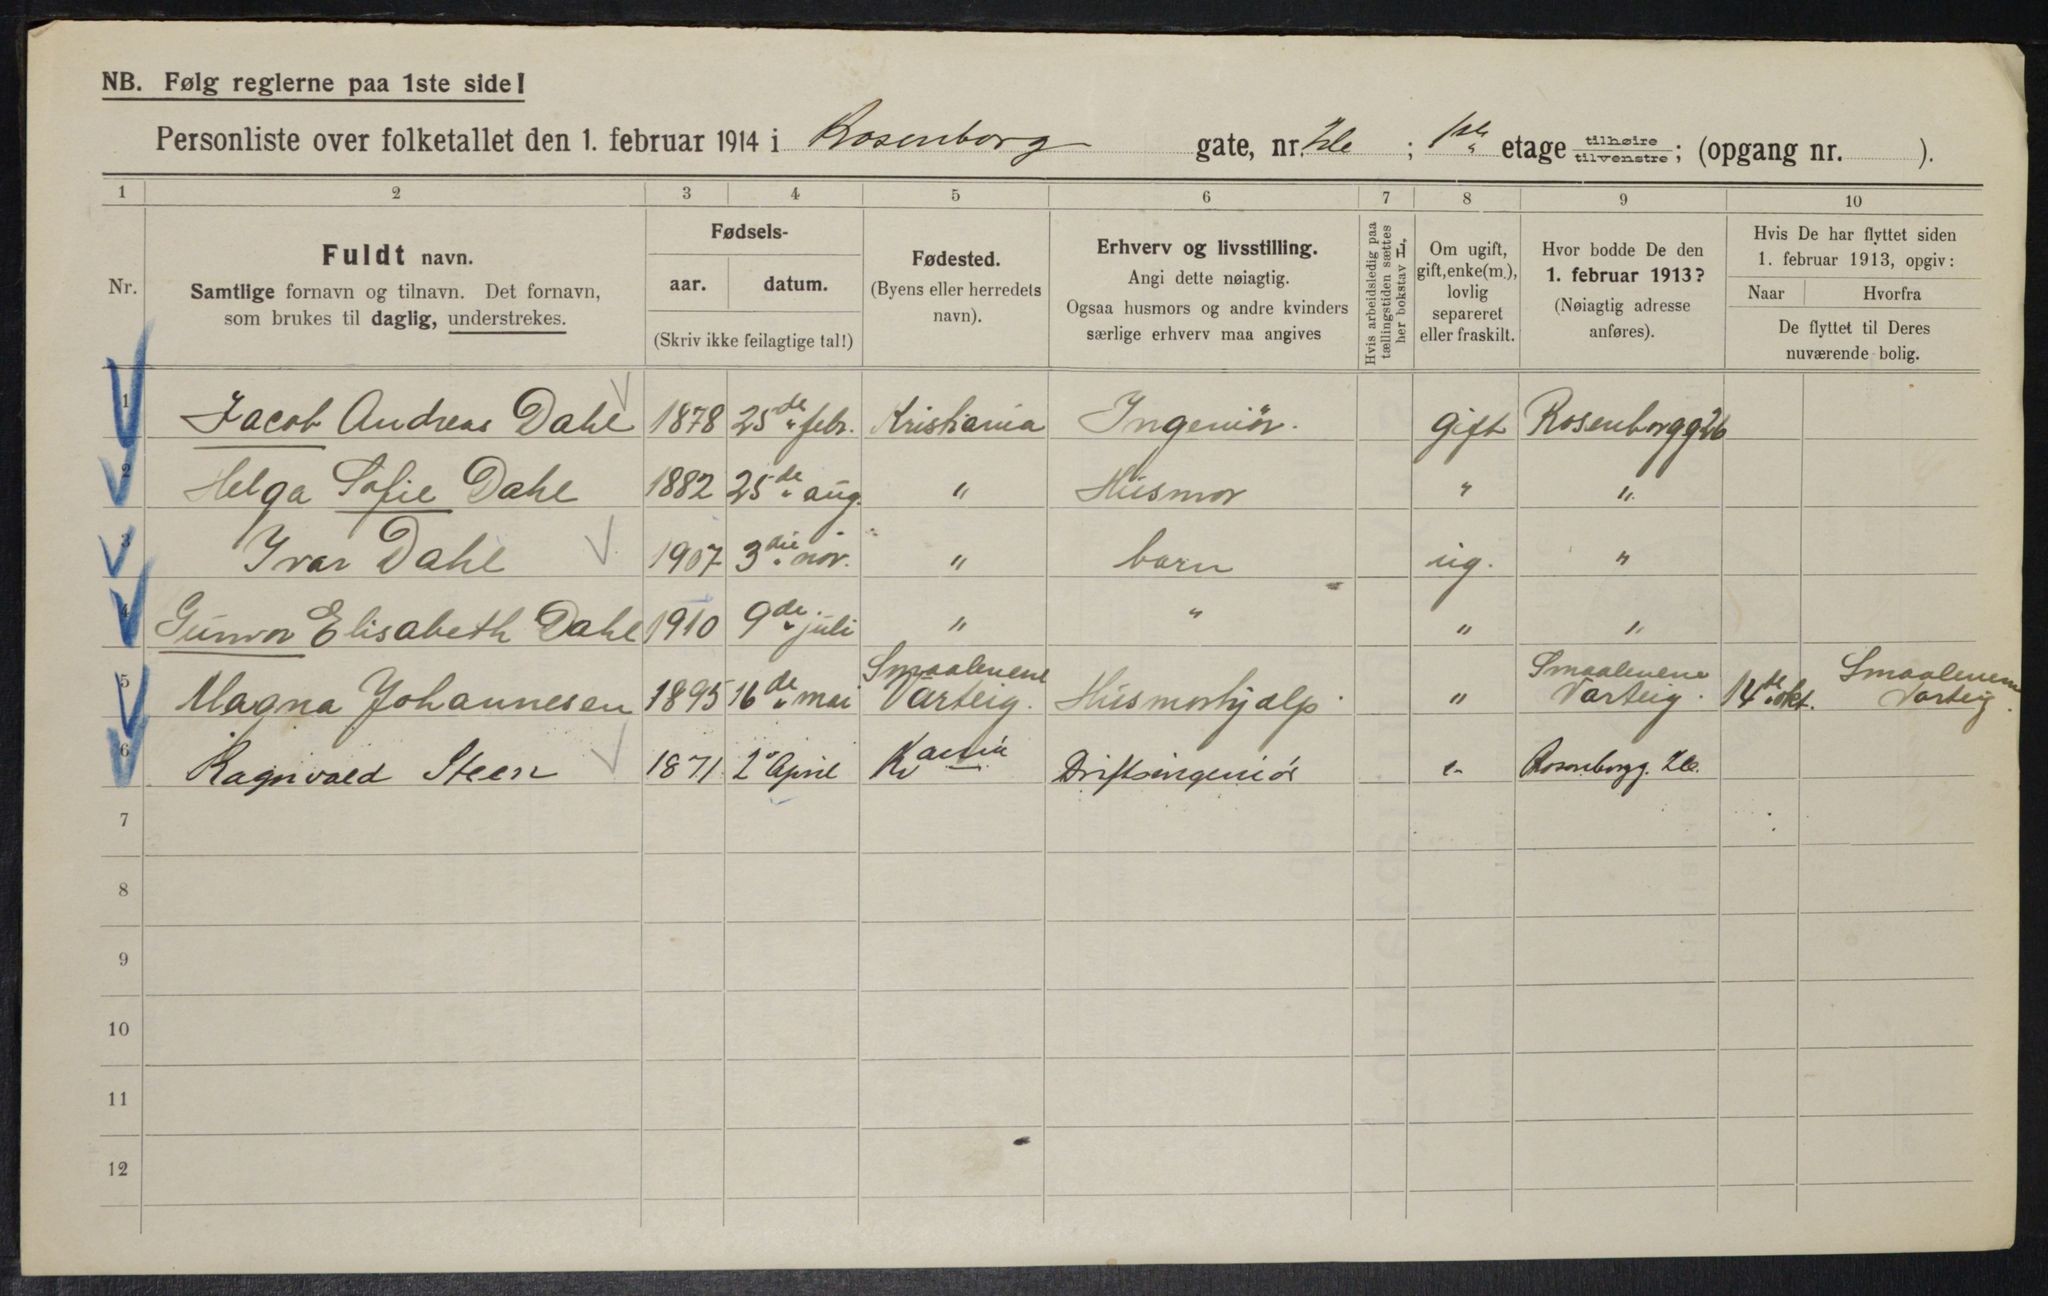 NB. Følg reglerne paa 1ste side!
Personliste over folketallet den 1. februar 1914 i Rosenborg gate, nr. ; 1ste etage tilhøire tilvenstre; (opgang nr. ).
1 2 3 4 5 6 7 8 9 10
Nr.
Fuldt navn.
Samtlige fornavn og tilnavn. Det fornavn,
som brukes til daglig, understrekes.
Fødsels-
aar. datum.
(Skriv ikke feilagtige tal!)
Fødested.
(Byens eller herredets
navn).
Erhverv og livsstilling.
Angi dette nøiagtig.
Ogsaa husmors og andre kvinders
særlige erhverv maa angives
Hvis arbeidsledig paa
tællingstiden sættes
her bokstav L.
Om ugift,
gift, enke(m.),
lovlig
separeret
eller fraskilt.
Hvor bodde De den
1. februar 1913?
(Nøiagtig adresse
anføres).
Hvis De har flyttet siden
1. februar 1913, opgiv:
Naar Hvorfra
De flyttet til Deres
nuværende bolig.
1 Jacob Andreas Dahl 1878 25de febr. Kristiania Ingeniör. gift Rosenborgg
2 Helga Sofie Dahl 1882 25de aug. " Husmor " "
3 Ivar Dahl 1907 3die nov. " barn ug. "
4 Gunvor Elisabeth Dahl 1910 9de juli " " " "
5 Magna Johannesen 1895 16de mai Smaalenene Varteig. Husmorhjælp " Smaalenene Varteig. 14de okt. Smaalenene Varteig.
6 Ragnvald Steen 1871 2 April Kr ania Driftsingeniör " Rosenborgg.
7
8
9
10
11
12